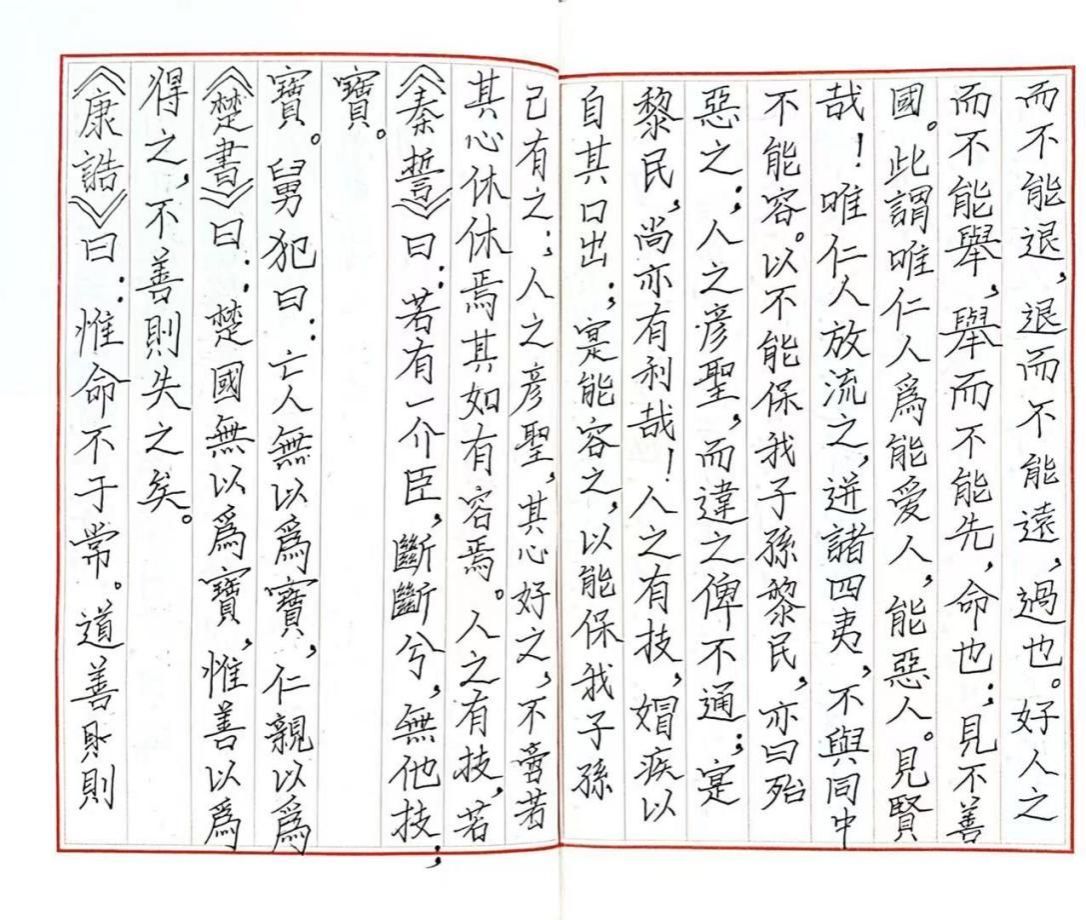 《康誥》曰：惟命不于常。道善則則
得之，不善則失之矣。
《楚書》曰：楚國無以爲寶，惟善以爲
寶。舅犯曰：亡人無以爲寶，仁親以爲
寶。
《秦誓》曰：若有一介臣，斷斷兮，無他技；
其心休休焉其如有容焉。人之有技，若
己有之；人之彥聖，其心好之，不啻若
自其口出；寔能容之，以能保我子孫
黎民，尚亦有利哉！人之有技，媢疾以
惡之；人之彥聖，而違之俾不通；寔
不能容。以不能保我子孫黎民，亦曰殆
哉！唯仁人放流之，迸諸四夷，不與同中
國。此謂唯仁人爲能愛人，能惡人。見賢
而不能舉，舉而不能先，命也；見不善
而不能退，退而不能遠，過也。好人之